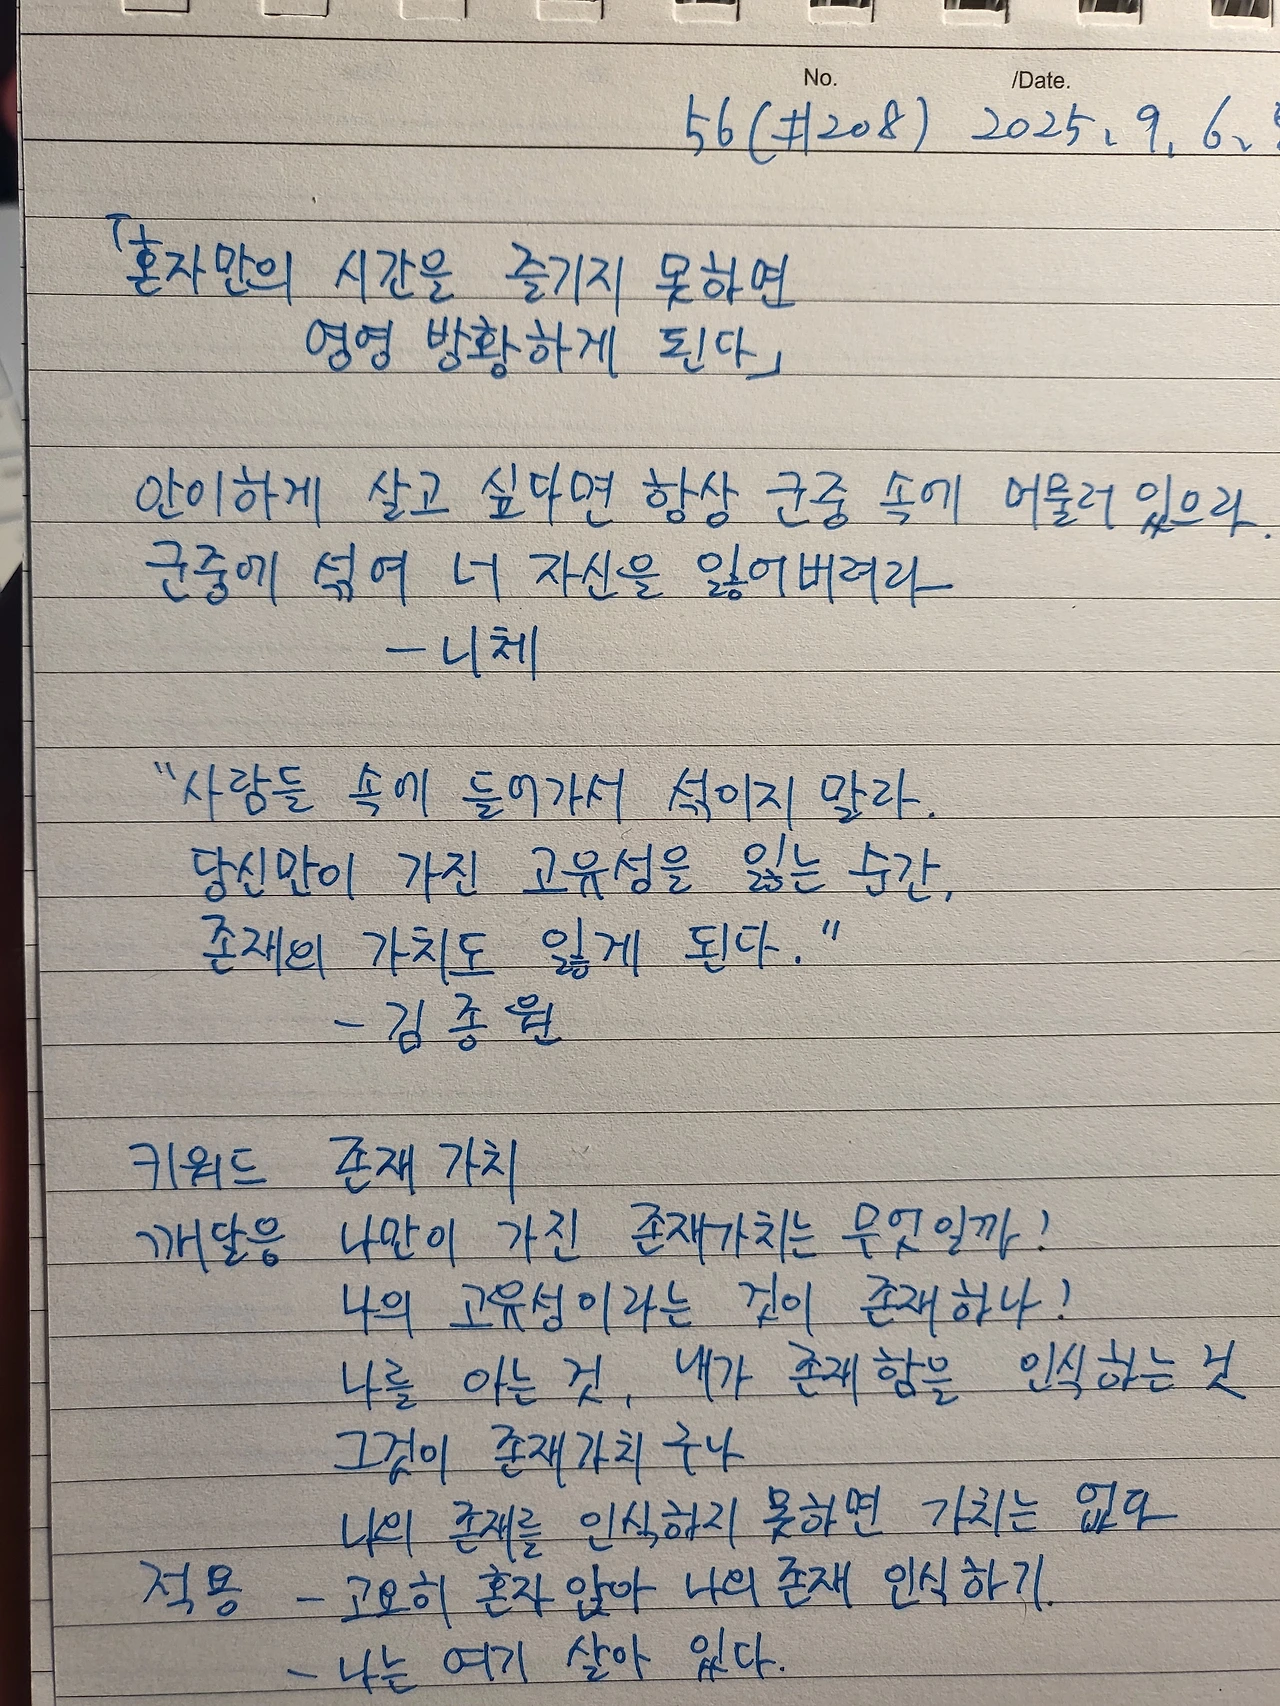 No. /Date.
56(#208) 2025. 9. 6.
「혼자만의 시간을 즐기지 못하면
영영 방황하게 된다」
안이하게 살고 싶다면 항상 군중 속에 머물러 있으라.
군중에 섞여 너 자신을 잃어버려라
- 니체
"사람들 속에 들어가서 섞이지 말라.
당신만이 가진 고유성을 잃는 순간,
존재의 가치도 잃게 된다."
- 김종원
키워드 존재 가치
깨달음 나만이 가진 존재가치는 무엇일까?
나의 고유성이라는 것이 존재하나?
나를 아는 것, 내가 존재함을 인식하는 것
그것이 존재가치구나
나의 존재를 인식하지 못하면 가치는 없다
적용 - 고요히 혼자 앉아 나의 존재 인식하기.
- 나는 여기 살아 있다.